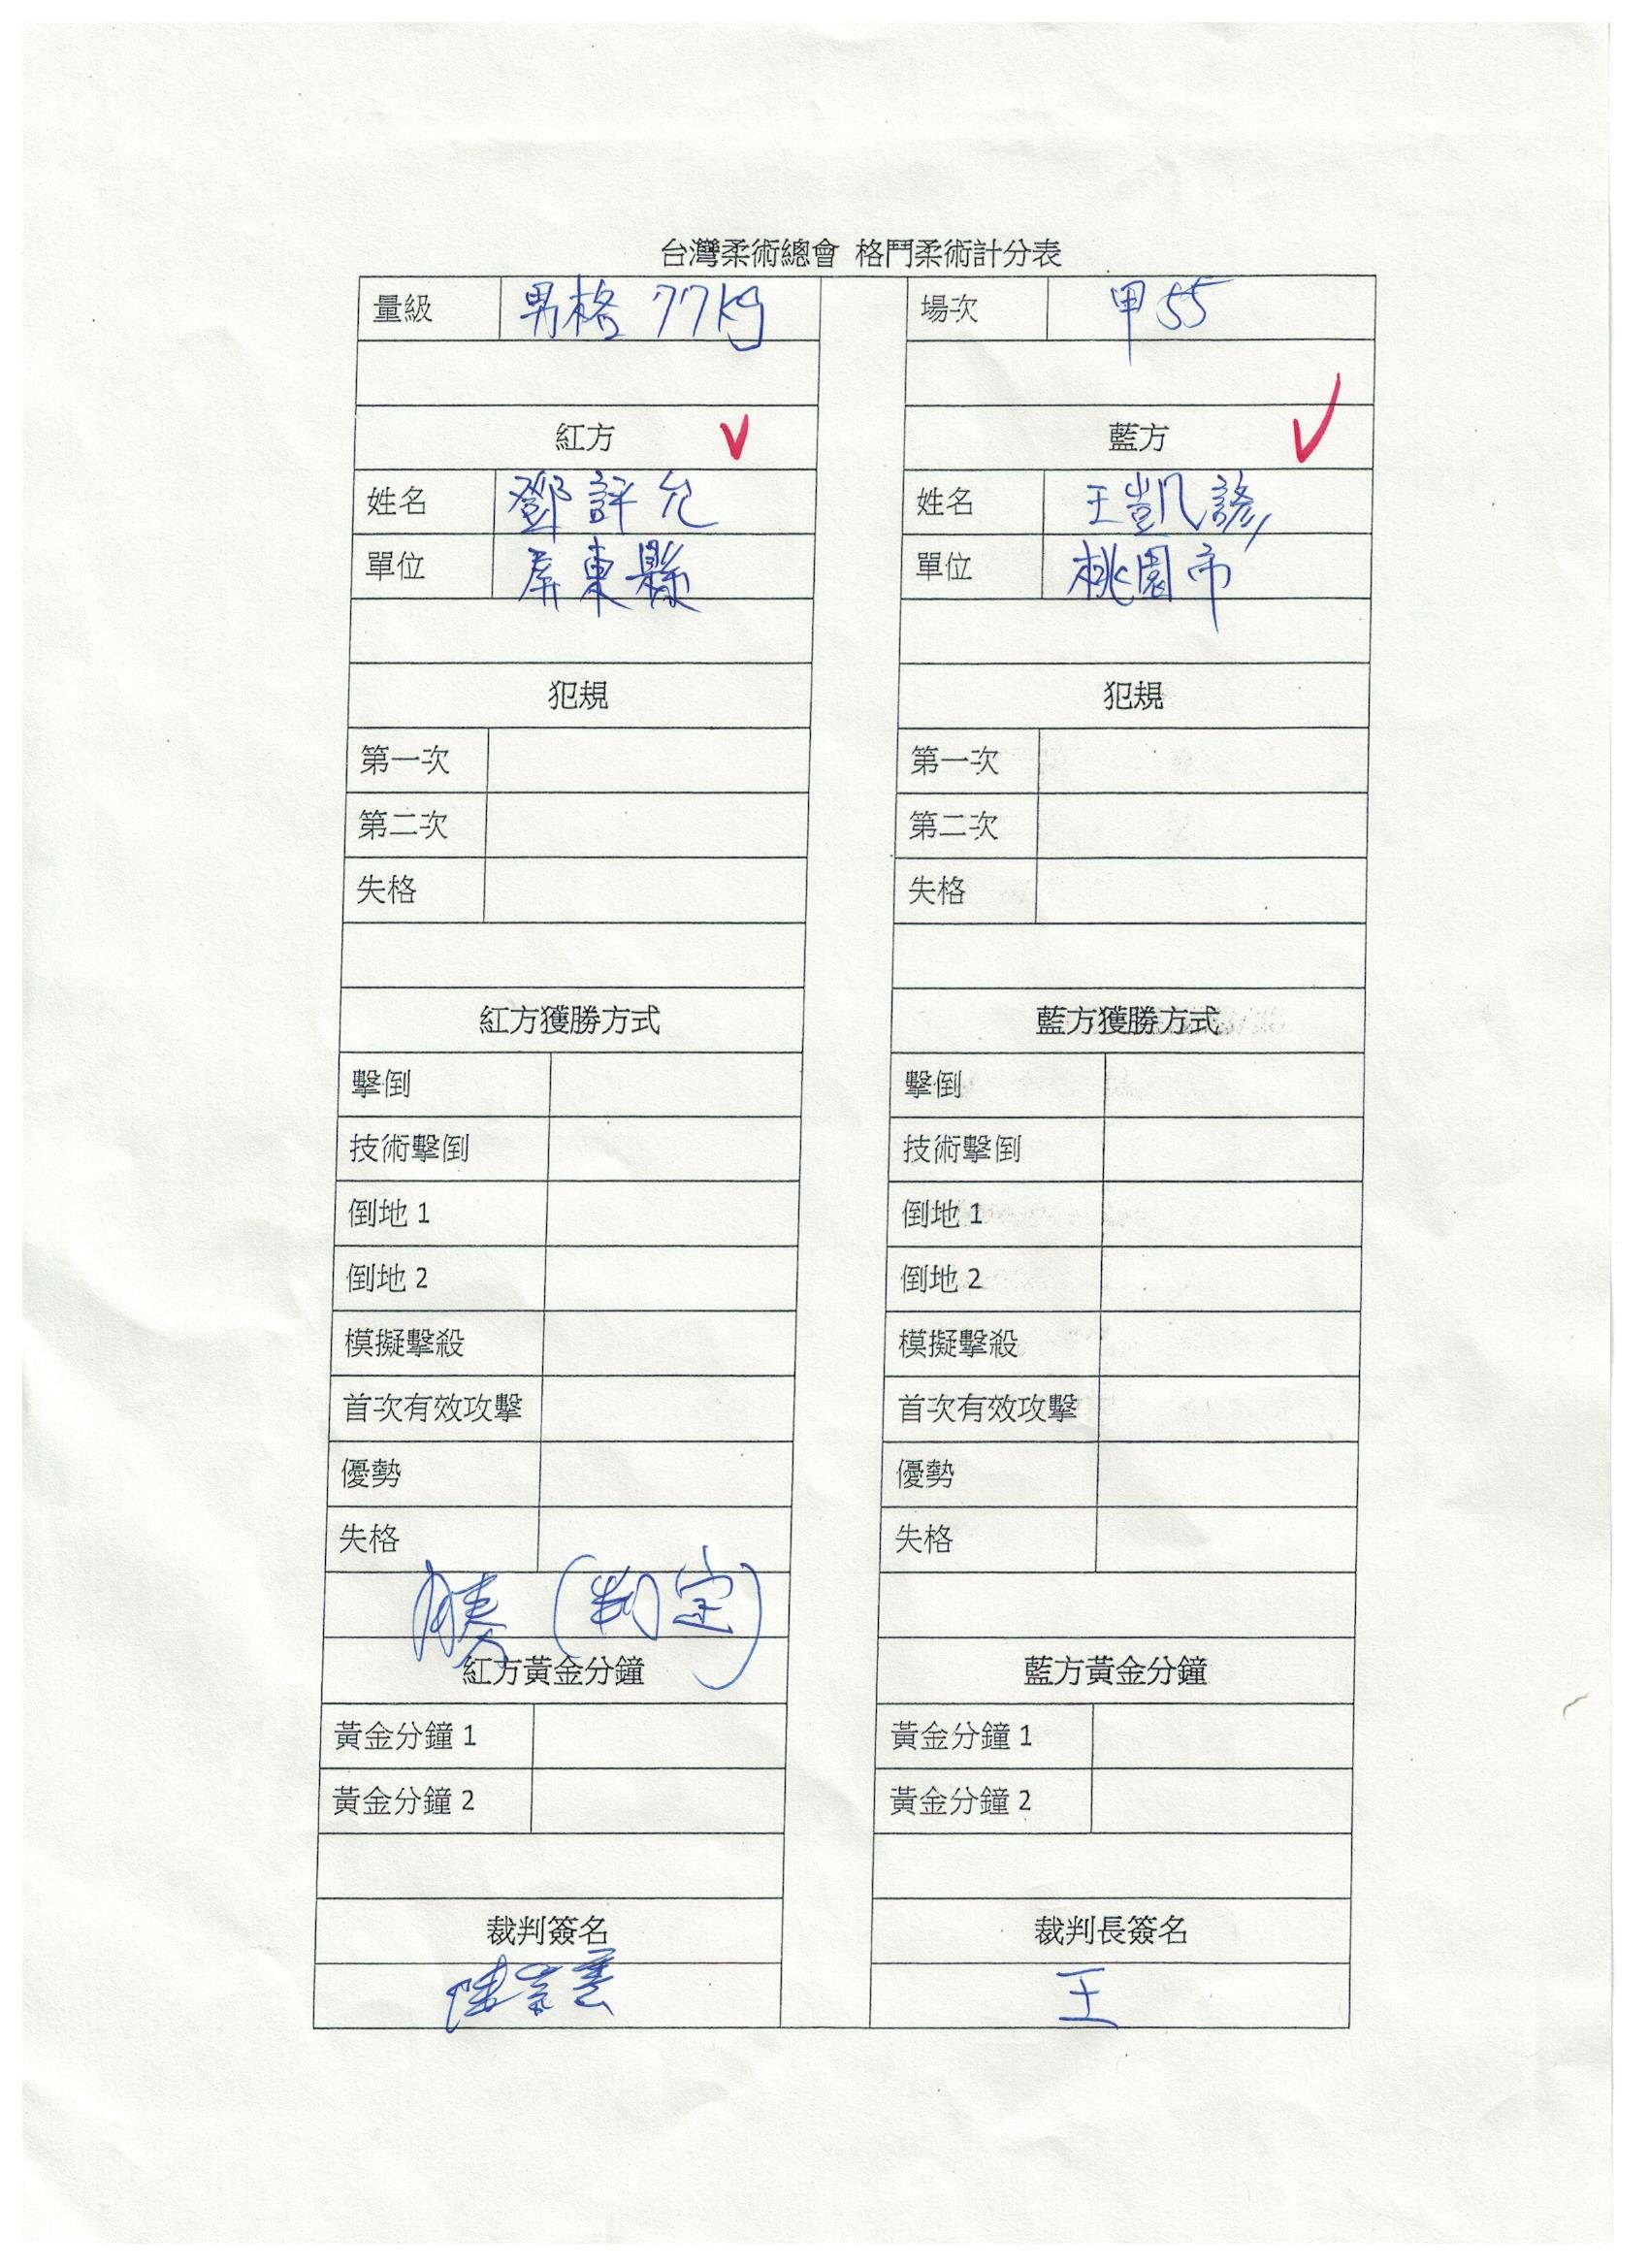 台灣柔術總會 格鬥柔術計分表
量級 男格 77kg 場次 甲55
紅方 藍方
姓名 鄧評允 姓名 王凱諺
單位 屏東縣 單位 桃園市
犯規 犯規
第一次 第一次
第二次 第二次
失格 失格
紅方獲勝方式 藍方獲勝方式
擊倒 擊倒
技術擊倒 技術擊倒
倒地 1 倒地 1
倒地 2 倒地 2
模擬擊殺 模擬擊殺
首次有效攻擊 首次有效攻擊
優勢 優勢
失格 失格
勝 (判定)
紅方黃金分鐘 藍方黃金分鐘
黃金分鐘 1 黃金分鐘 1
黃金分鐘 2 黃金分鐘 2
裁判簽名 裁判長簽名
王